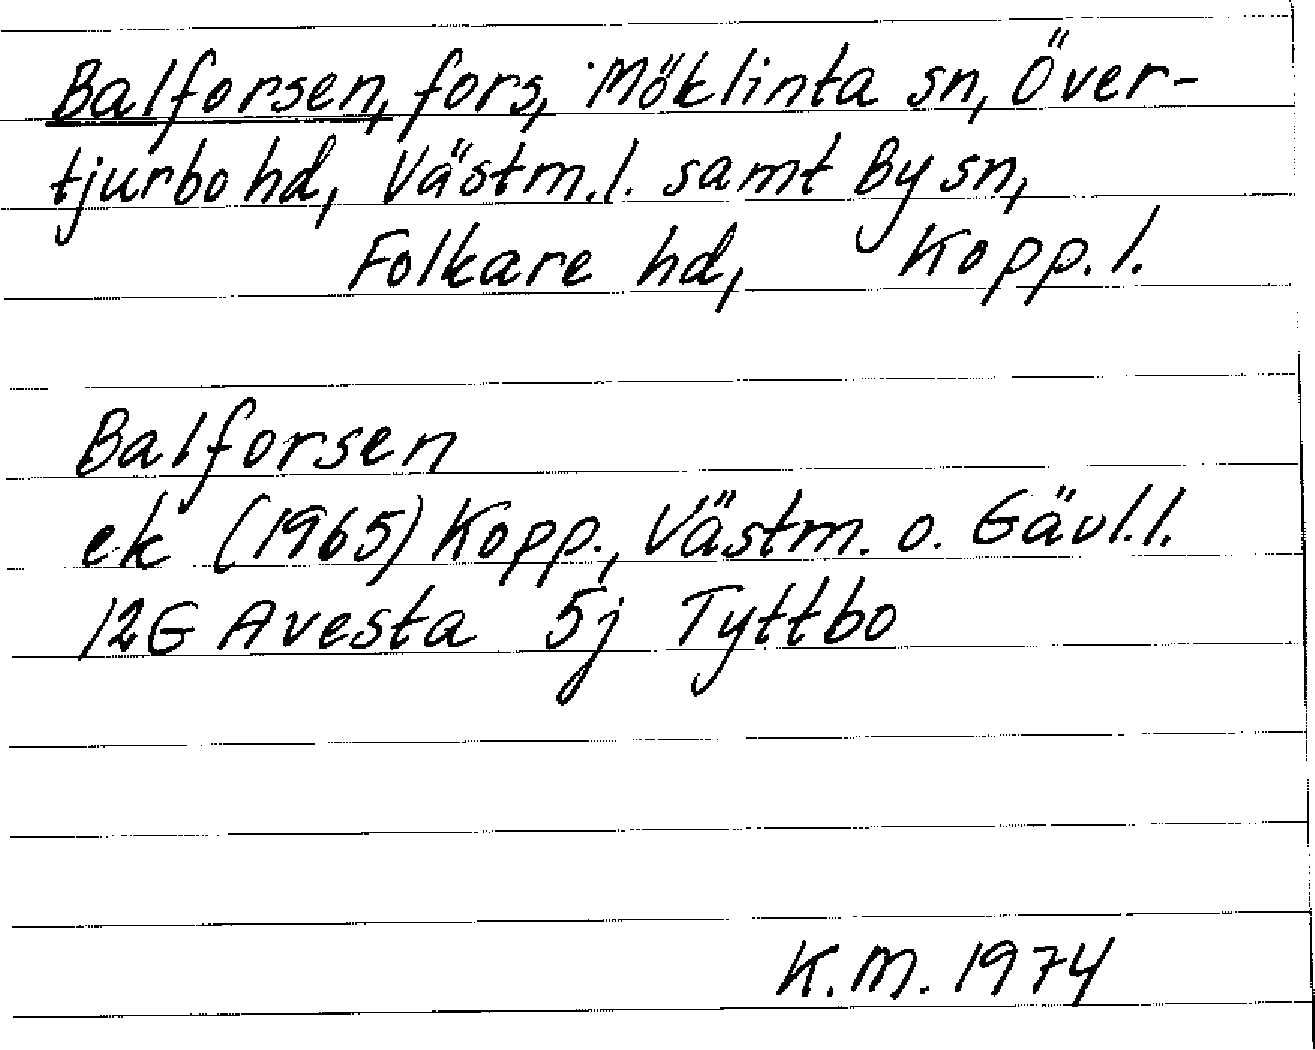 Balforsen, fors, Möklinta sn, Över-
tjurbo hd, Västm.l. samt By sn,
Folkare hd, Kopp.l.
Balforsen
ek (1965) Kopp., Västm. o. Gävl.l.
12G Avesta 5j Tyttbo
K.M. 1974